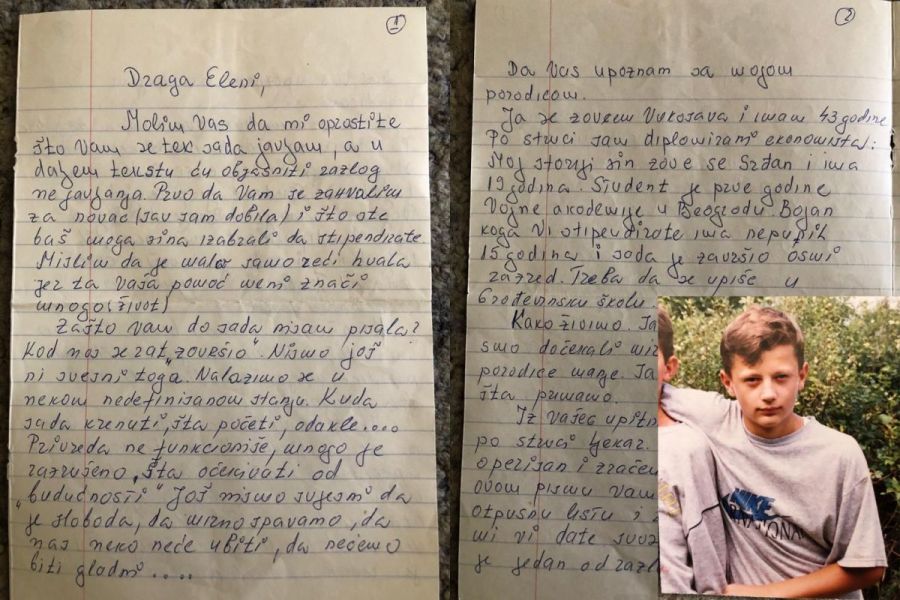 1
Draga Eleni,
Molim Vas da mi oprostite
što Vam se tek sada javljam, a u
daljem tekstu ću objasniti razlog
ne javljanja. Prvo da Vam se zahvalim
za novac (sav sam dobila) i što ste
baš moga sina izabrali da stipendirate.
Mislim da je malo samo reći hvala
jer ta Vaša pomoć meni znači
mnogo (život)
Zašto Vam do sada nisam pisala?
Kod nas se rat „završio“. Nismo još
ni svesni toga. Nalazimo se u
nekom nedefinisanom stanju. Kuda
sada krenuti, šta početi, odakle....
Privreda ne funkcioniše, mnogo je
razrušeno, šta očekivati od
„budućnosti“ Još nismo svjesni da
je sloboda, da mirno spavamo, da
nas neko neće ubiti, da nećemo
biti gladni....
2
Da Vas upoznam sa mojom
porodicom.
Ja se zovem Vukosava i imam 43 godine
Po struci sam diplomirani ekonomista.
Moj stariji sin zove se Srđan i ima
19 godina. Student je prve godine
Vojne akademije u Beogradu Bojan
koga Vi stipendirate ima nepunih
15 godina i sada je završio osmi
razred. Treba da se upiše u
Građevinsku školu.
Kako živimo. Ja
smo dočekali
porodice manje. Ja
šta primamo.
Iz Vašeg
po struci ljekar.
operisan i
ovom pismu Vam
otpusnu listu i
mi Vi date
je jedan od
NIKE